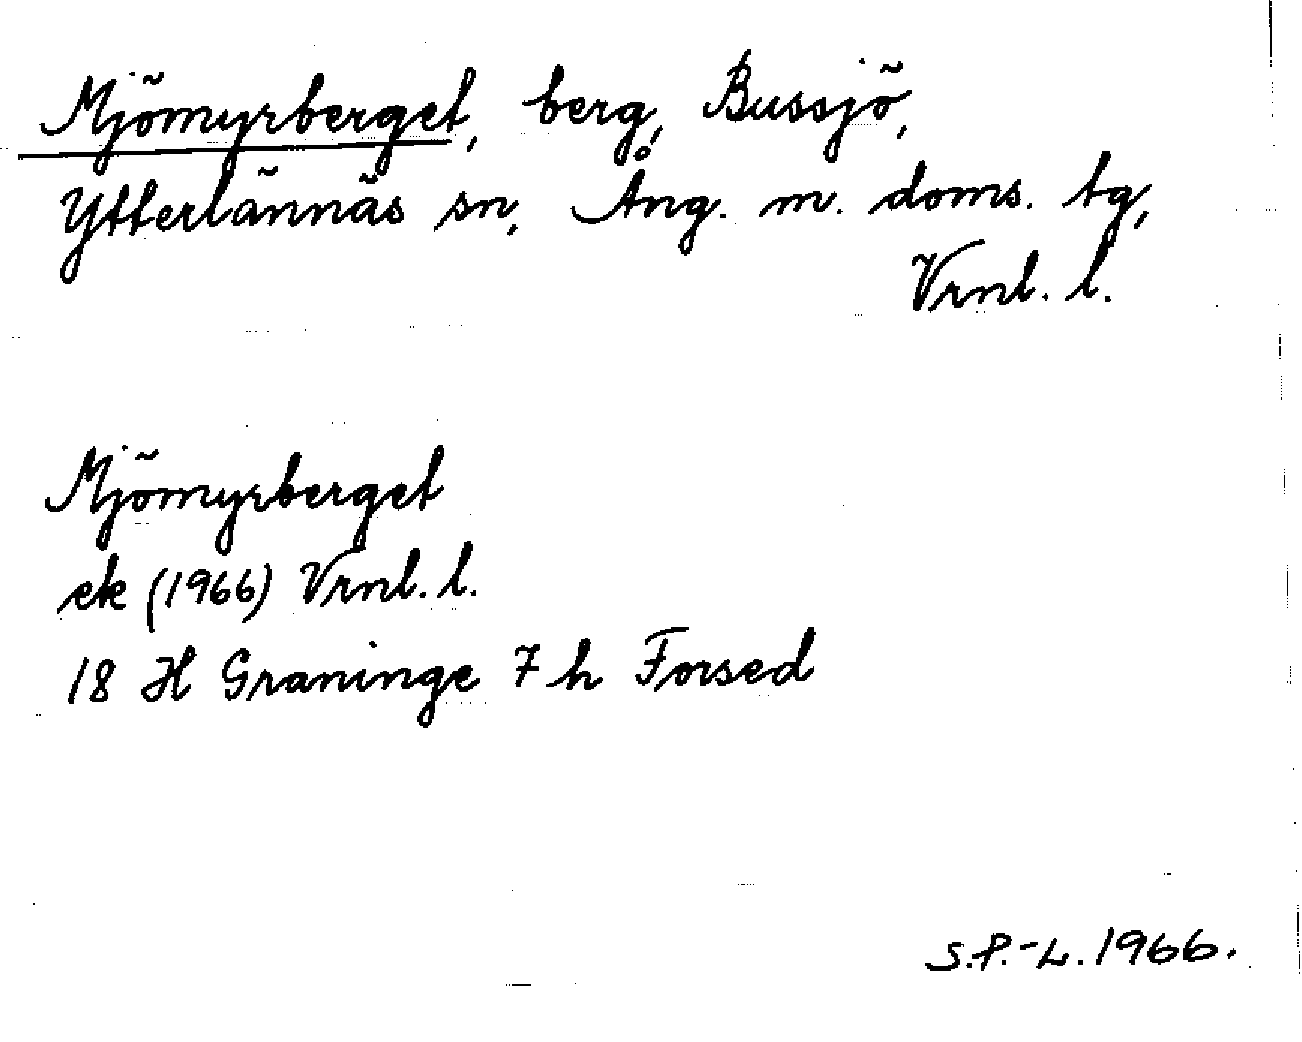 Mjömyrberget, berg, Bussjö,
Ytterlännäs sn, Ång. m. doms. tg,
Vrnl. l.
Mjömyrberget
ek (1966) Vrnl. l.
18 H Graninge 7 h Forsed
S.P.-L. 1966.